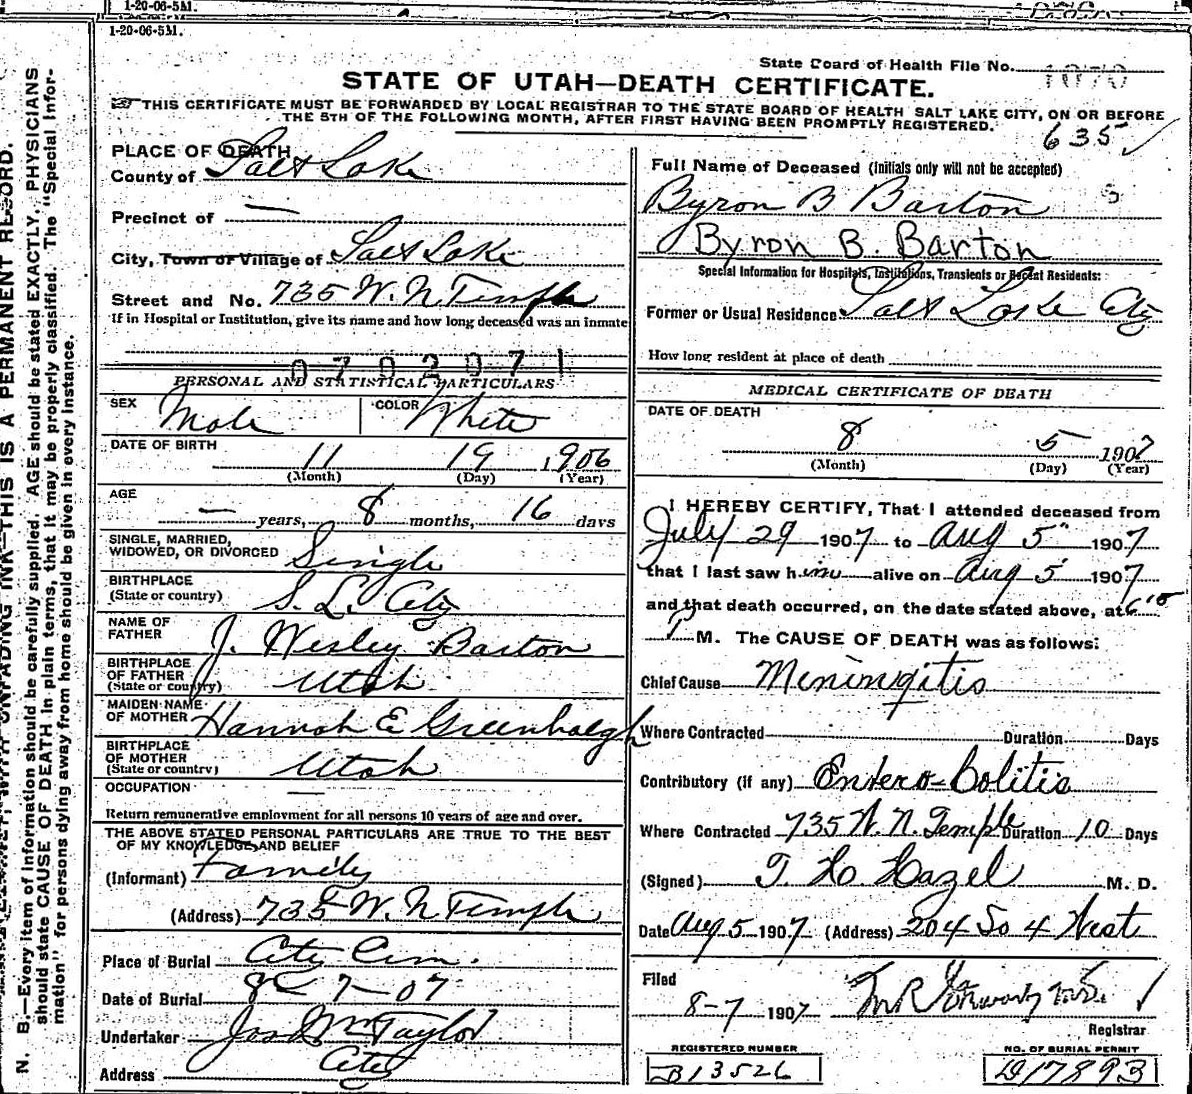 1-20-06-5M.
1-20-06-5M.
State Board of Health File No. 1070
STATE OF UTAH—DEATH CERTIFICATE.
THIS CERTIFICATE MUST BE FORWARDED BY LOCAL REGISTRAR TO THE STATE BOARD OF HEALTH SALT LAKE CITY, ON OR BEFORE
THE 5TH OF THE FOLLOWING MONTH, AFTER FIRST HAVING BEEN PROMPTLY REGISTERED.
635
PLACE OF DEATH
County of Salt Lake
Precinct of —
City, Town or Village of Salt Lake
Street and No. 735 W. N Temple
If in Hospital or Institution, give its name and how long deceased was an inmate
0702071
PERSONAL AND STATISTICAL PARTICULARS
SEX Male COLOR White
DATE OF BIRTH
11 19 1906
(Month) (Day) (Year)
AGE
— years, 8 months, 16 days
SINGLE, MARRIED,
WIDOWED, OR DIVORCED Single
BIRTHPLACE
(State or country) S. L. City
NAME OF
FATHER J. Wesley Barton
BIRTHPLACE
OF FATHER
(State or country) Utah
MAIDEN NAME
OF MOTHER Hannah E Greenhalgh
BIRTHPLACE
OF MOTHER
(State or country) Utah
OCCUPATION —
Return remunerative employment for all persons 10 years of age and over.
THE ABOVE STATED PERSONAL PARTICULARS ARE TRUE TO THE BEST
OF MY KNOWLEDGE AND BELIEF
(Informant) Family
(Address) 735 W. N Temple
Place of Burial City Cem.
Date of Burial 8-7-07
Undertaker Jos Wm Taylor
Address City
Full Name of Deceased (Initials only will not be accepted)
Byron B Barton
Byron B. Barton
Special Information for Hospitals, Institutions, Transients or Recent Residents:
Former or Usual Residence Salt Lake City
How long resident at place of death
MEDICAL CERTIFICATE OF DEATH
DATE OF DEATH
8 5 1907
(Month) (Day) (Year)
I HEREBY CERTIFY, That I attended deceased from
July 29 1907 to Aug 5" 1907
that I last saw him alive on Aug 5 1907
and that death occurred, on the date stated above, at 6 15
P M. The CAUSE OF DEATH was as follows:
Chief Cause Meningitis
Where Contracted Duration Days
Contributory (if any) Entero-Colitis
Where Contracted 735 W. N. Temple Duration 10 Days
(Signed) T. H. Hazel M. D.
Date Aug 5 1907 (Address) 204 So 4 West
Filed
8-7 1907
Registrar
REGISTERED NUMBER
B13526
NO. OF BURIAL PERMIT
D17893
N. B.—Every item of information should be carefully supplied. AGE should be stated EXACTLY. PHYSICIANS
should state CAUSE OF DEATH in plain terms, that it may be properly classified. The "Special Infor-
mation" for persons dying away from home should be given in every instance.
UNFADING INK—THIS IS A PERMANENT RECORD.